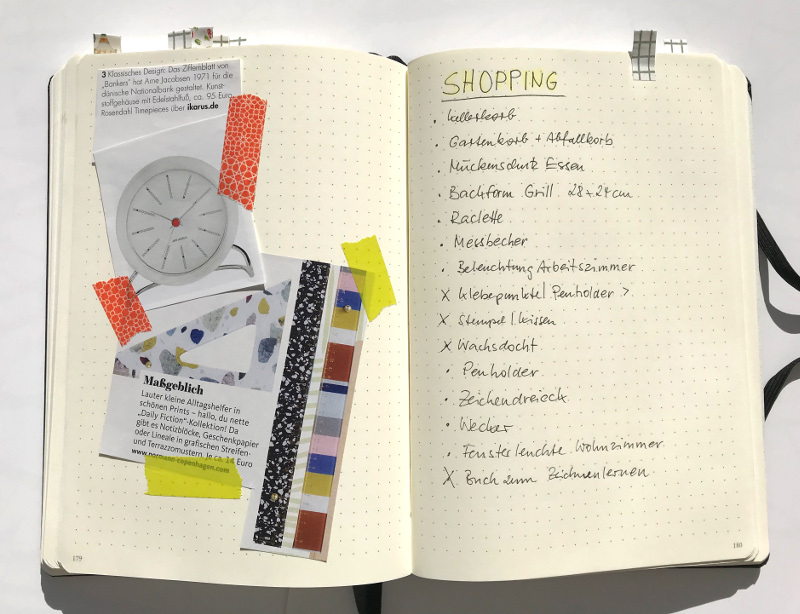 3 Klassisches Design: Das Ziffernblatt von
„Bankers" hat Arne Jacobsen 1971 für die
dänische Nationalbank gestaltet. Kunst-
stoffgehäuse mit Edelstahlfuß, ca. 95 Euro,
Rosendahl Timepieces über ikarus.de
Maßgeblich
Lauter kleine Alltagshelfer in
schönen Prints – hallo, du nette
„Daily Fiction"-Kollektion! Da
gibt es Notizblöcke, Geschenkpapier
oder Lineale in grafischen Streifen-
und Terrazzomustern. Je ca. 14 Euro
www.normann-copenhagen.com
179
SHOPPING
• Gartenkorb + Abfallkorb
• Mückenschutz Essen
• Backform Grill 28+24cm
• Raclette
• Messbecher
• Beleuchtung Arbeitszimmer
X Klebepunkte | Penholder >
X Stempel | kissen
X Wachsdocht
• Penholder
• Zeichendreieck
• Wecker
• Fensterleuchte Wohnzimmer
X Buch zum Zeichnenlernen
180